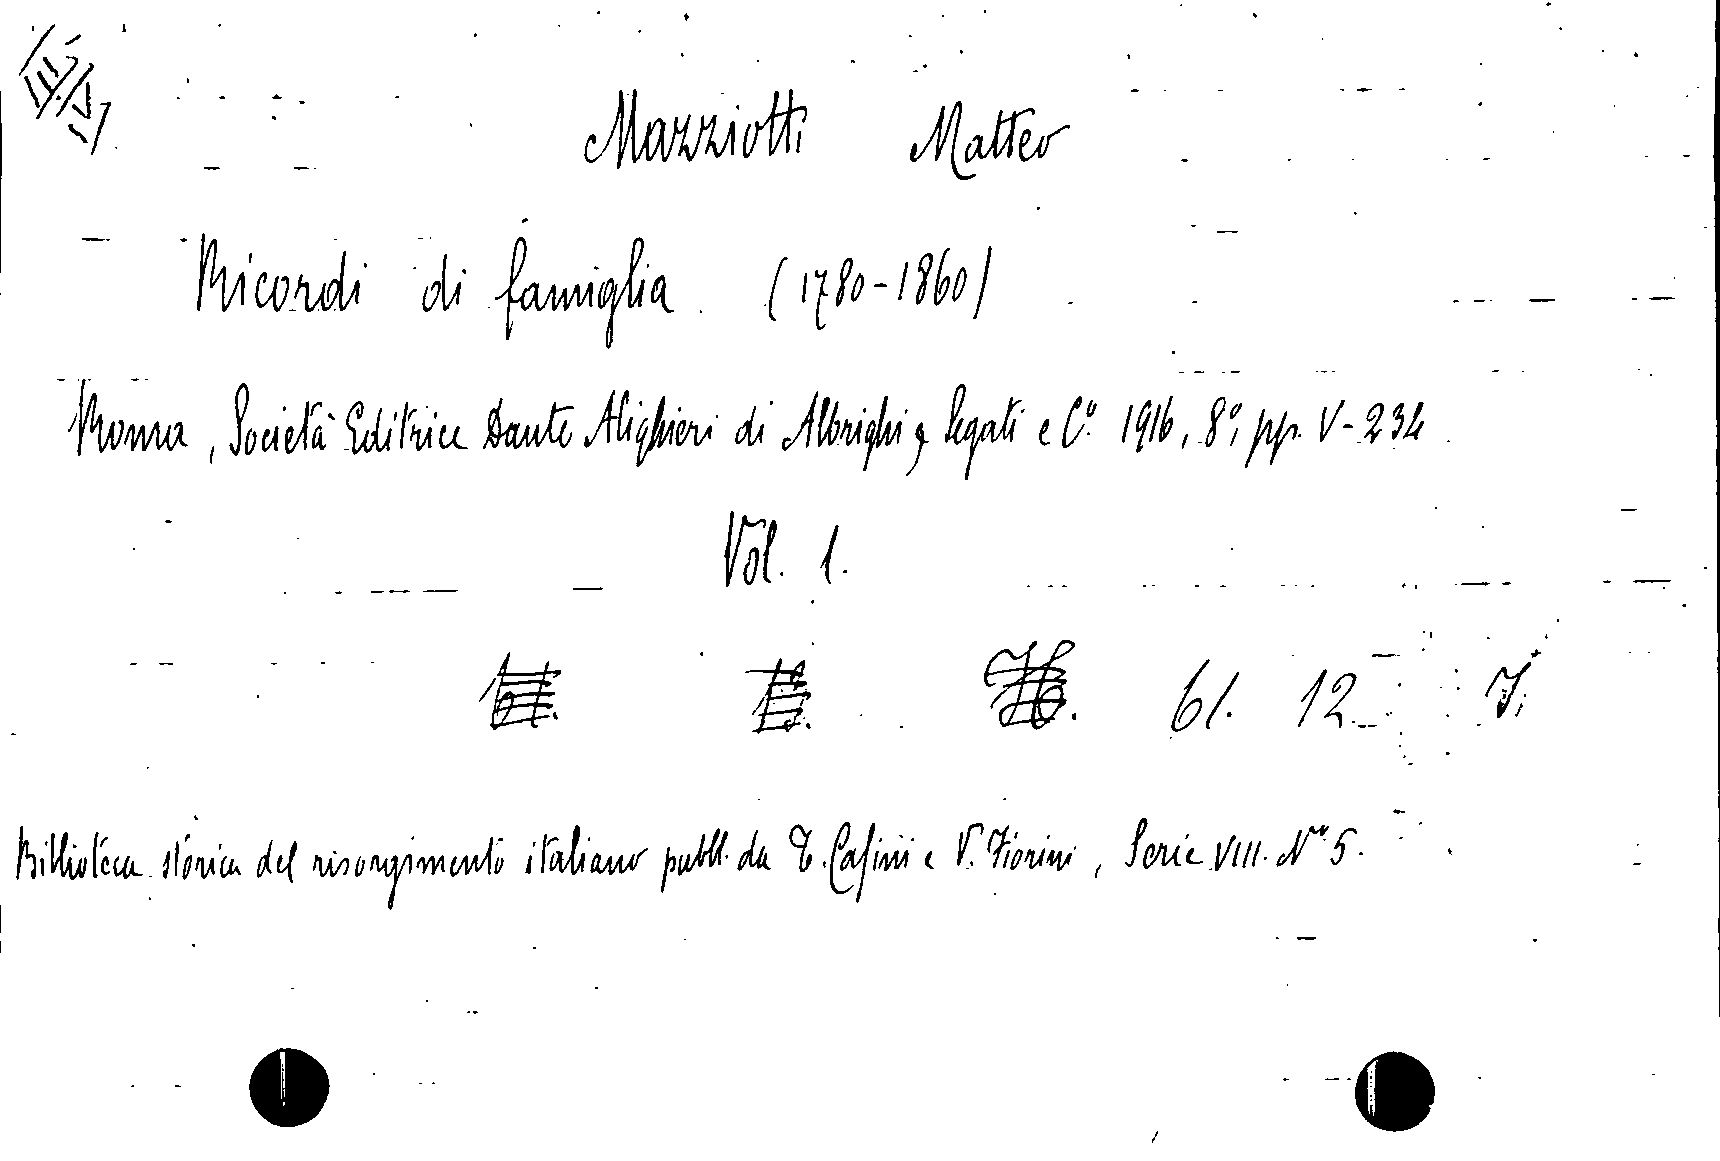 Mazziotti Matteo
Ricordi di famiglia (1780-1860)
Roma, Società Editrice Dante Alighieri di Albrighi, Segati e C.º 1916, 8º, pp. V-234
Vol. 1.
61. 12
Biblioteca storica del risorgimento italiano publl. da T. Casini e V. Fiorini, Serie VIII. Nº 5.